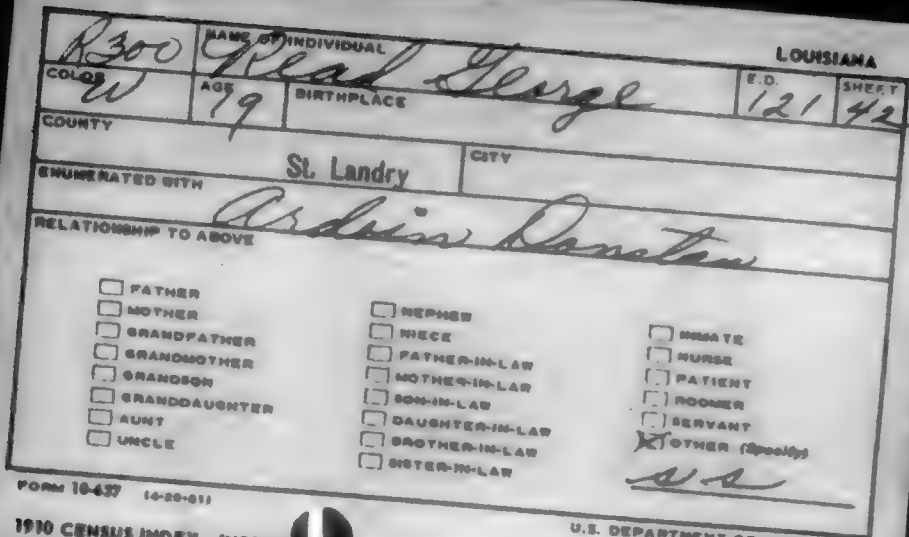 LOUISIANA
R300 NAME OF INDIVIDUAL Read George E.D. 121 SHEET 42
COLOR W AGE 19 BIRTHPLACE
COUNTY St. Landry CITY
ENUMERATED WITH Ardoin
RELATIONSHIP TO ABOVE
FATHER
MOTHER
GRANDFATHER
GRANDMOTHER
GRANDSON
GRANDDAUGHTER
AUNT
UNCLE
NEPHEW
NIECE
FATHER-IN-LAW
MOTHER-IN-LAW
SON-IN-LAW
DAUGHTER-IN-LAW
BROTHER-IN-LAW
SISTER-IN-LAW
INMATE
NURSE
PATIENT
ROOMER
SERVANT
OTHER (Specify)
SS
FORM 10-637 (4-20-61)
1910 CENSUS INDEX
U.S. DEPARTMENT